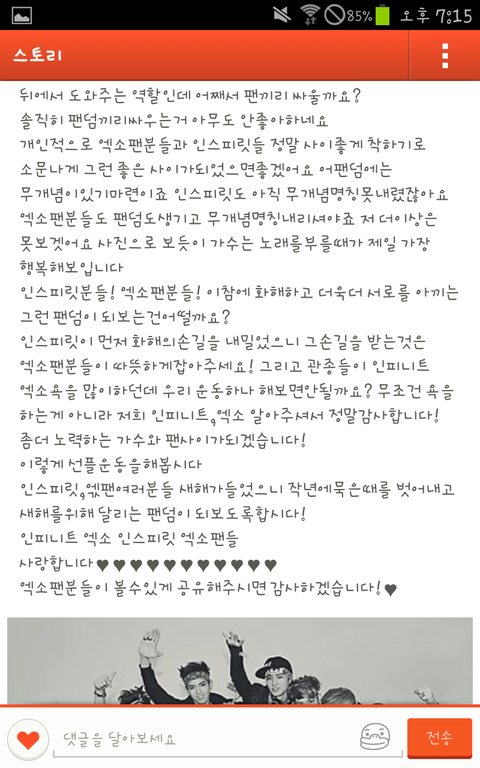 85% 오후 7:15
스토리
뒤에서 도와주는 역할인데 어째서 팬끼리 싸울까요?
솔직히 팬덤끼리싸우는거 아무도 안좋아하네요
개인적으로 엑소팬분들과 인스피릿들 정말 사이좋게 착하기로
소문나게 그런 좋은 사이가되었으면좋겠어요 어팬덤에는
무개념이있기마련이죠 인스피릿도 아직 무개념명칭못내렸잖아요
엑소팬분들도 팬덤도생기고 무개념명칭내리셔야죠 저 더이상은
못보겟어요 사진으로 보듯이 가수는 노래를부를때가 제일 가장
행복해보입니다
인스피릿분들! 엑소팬분들! 이참에 화해하고 더욱더 서로를 아끼는
그런 팬덤이 되보는건어떨까요?
인스피릿이 먼저 화해의손길을 내밀었으니 그손길을 받는것은
엑소팬분들이 따뜻하게잡아주세요! 그리고 관종들이 인피니트
엑소욕을 많이하던데 우리 운동하나 해보면안될까요? 무조건 욕을
하는게 아니라 저희 인피니트,엑소 알아주셔서 정말감사합니다!
좀더 노력하는 가수와 팬사이가되겠습니다!
이렇게 선플운동을해봅시다
인스피릿,엑팬여러분들 새해가들었으니 작년에묵은때를 벗어내고
새해를위해 달리는 팬덤이 되보도록합시다!
인피니트 엑소 인스피릿 엑소팬들
사랑합니다♥♥♥♥♥♥♥♥♥♥♥
엑소팬분들이 볼수있게 공유해주시면 감사하겠습니다!♥
댓글을 달아보세요 전송